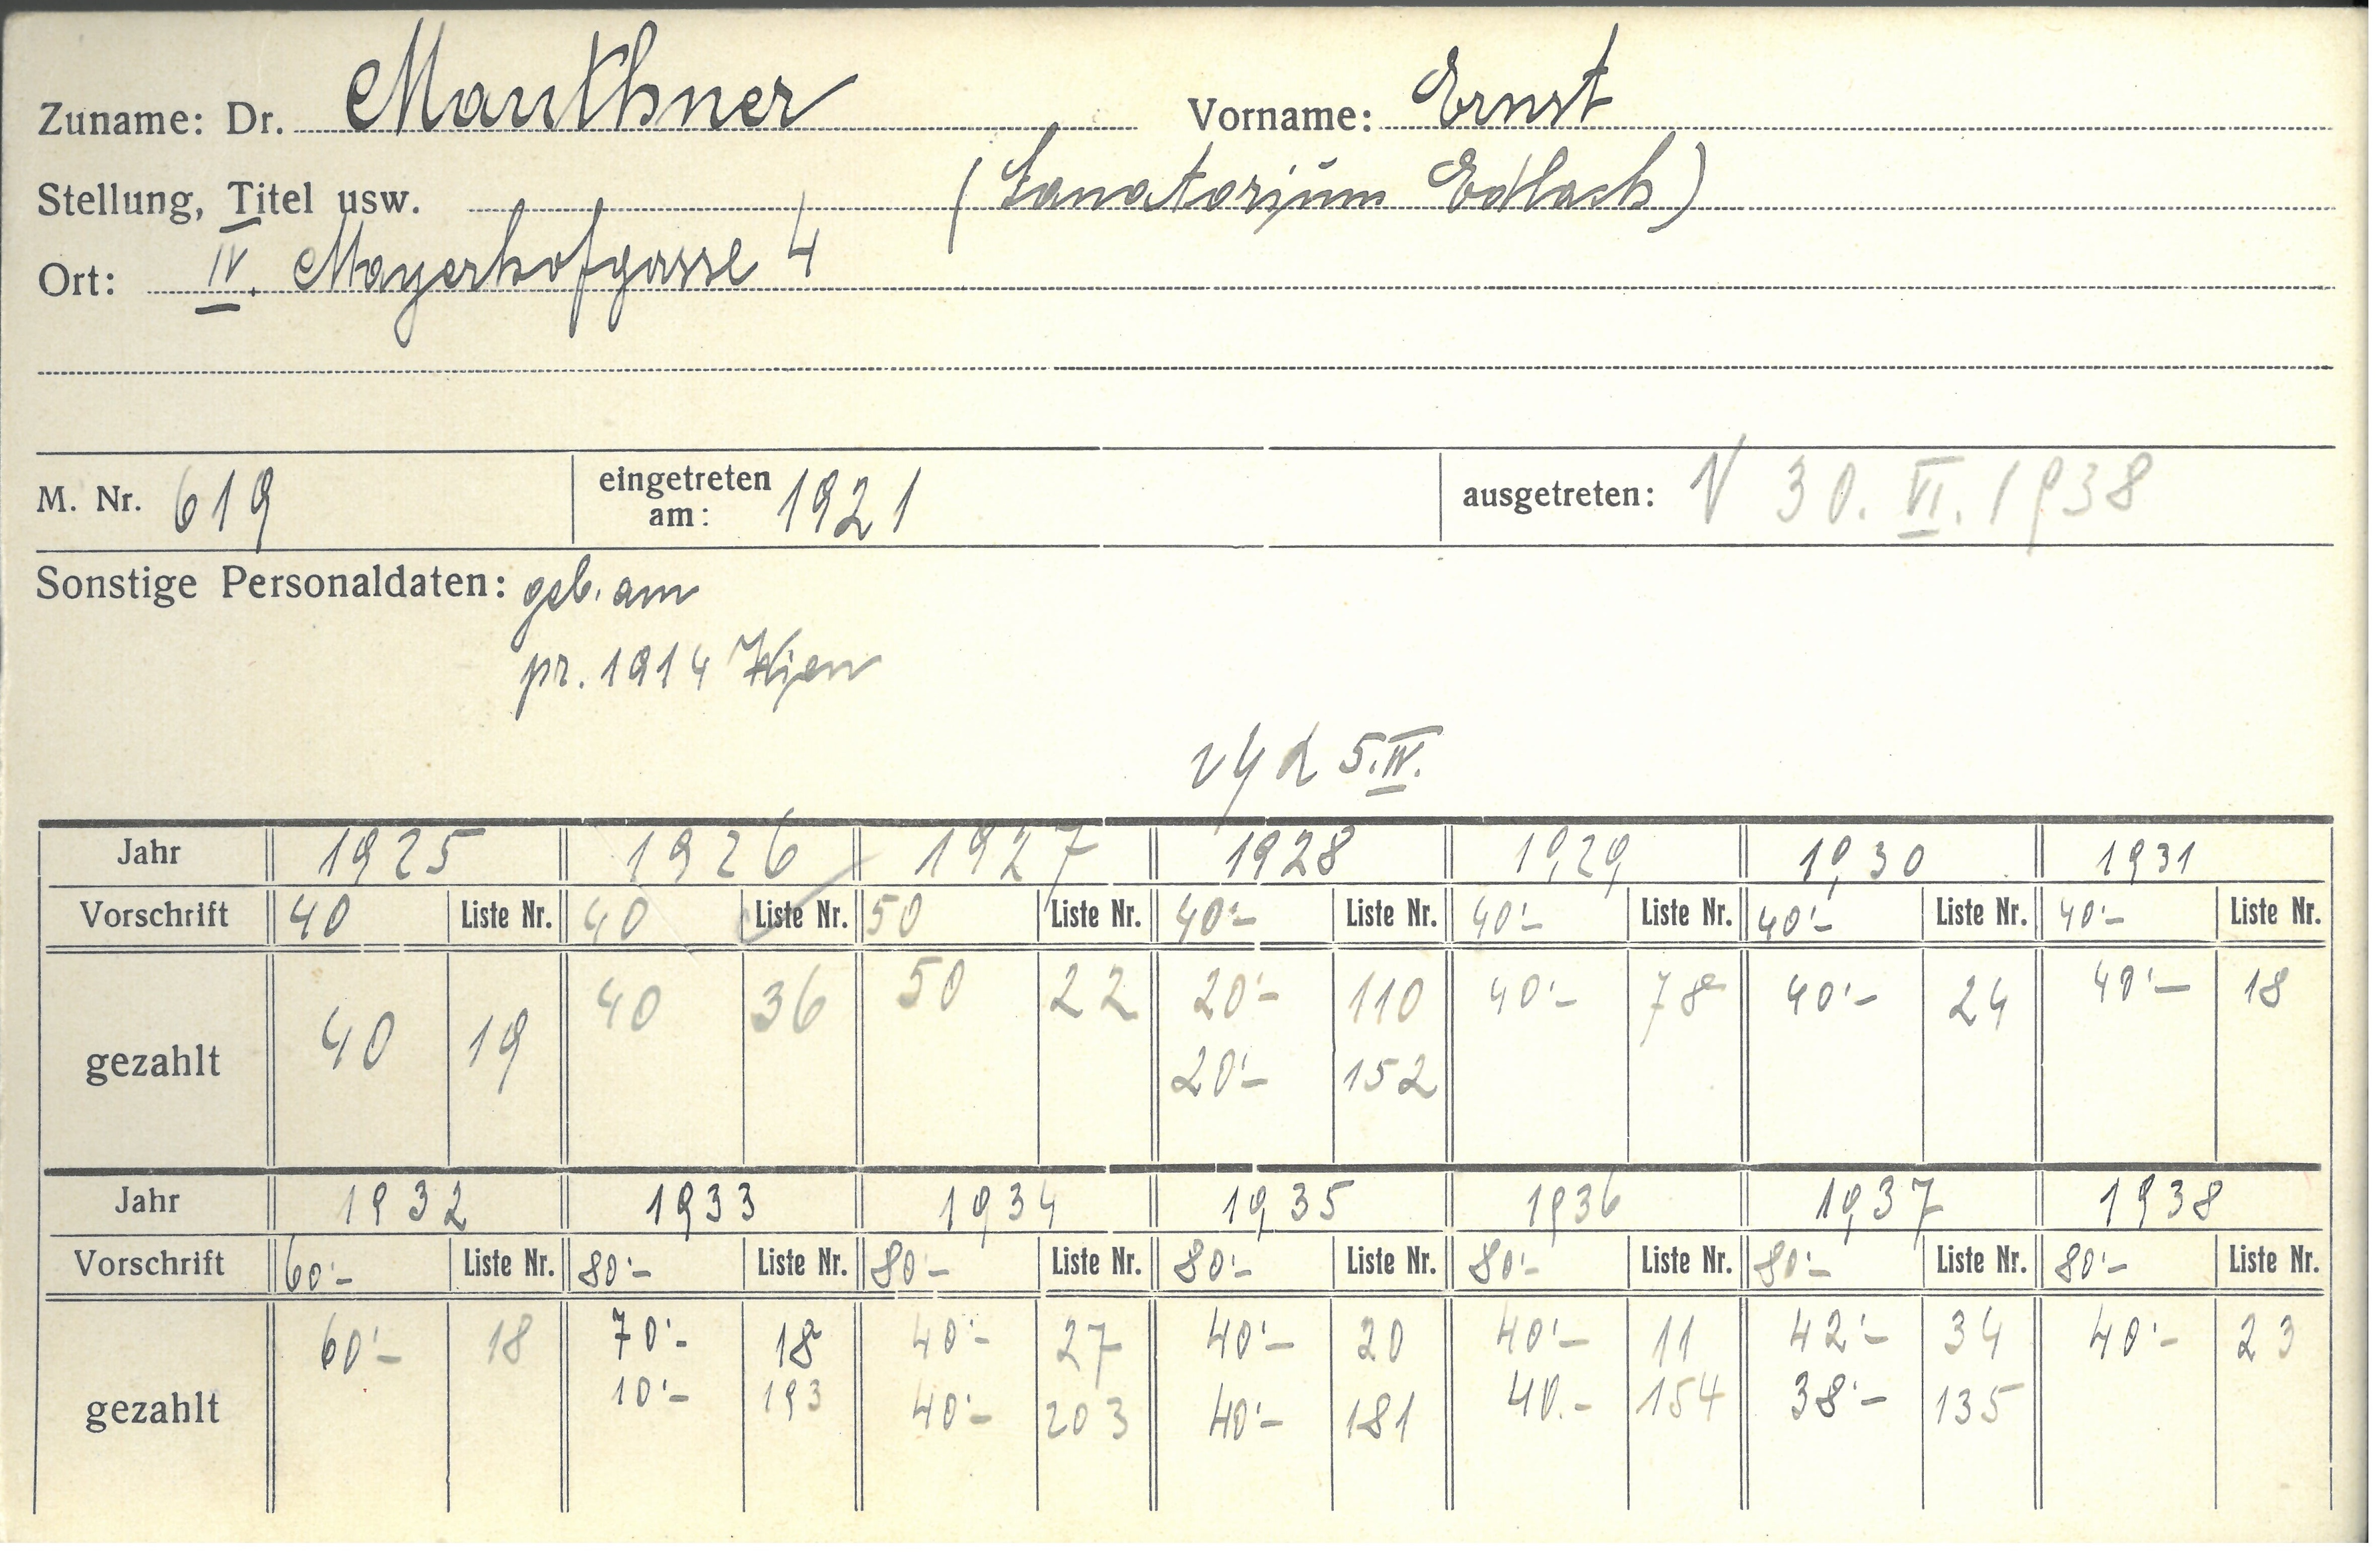 Zuname: Dr. Mauthner Vorname: Ernst
Stellung, Titel usw. (Sanatorium Edlach)
Ort: IV. Mayerhofgasse 4
M. Nr. 619 eingetreten am: 1921 ausgetreten: 30. VI. 1938
Sonstige Personaldaten: geb. am
pr. 1914 Wien
5. IV.
Jahr 1925 1926 1927 1928 1929 1930 1931
Vorschrift 40 Liste Nr. 40 Liste Nr. 50 Liste Nr. 40'- Liste Nr. 40'- Liste Nr. 40'- Liste Nr. 40'- Liste Nr.
gezahlt 40 19 40 36 50 22 20'- 110 40'- 78 40'- 24 40'- 18
20'- 152
Jahr 1932 1933 1934 1935 1936 1937 1938
Vorschrift 60'- Liste Nr. 80'- Liste Nr. 80'- Liste Nr. 80'- Liste Nr. 80'- Liste Nr. 80'- Liste Nr. 80'- Liste Nr.
gezahlt 60'- 18 70'- 18 40'- 27 40'- 20 40'- 11 42'- 34 40'- 23
10'- 193 40'- 203 40'- 181 40.- 154 38'- 135